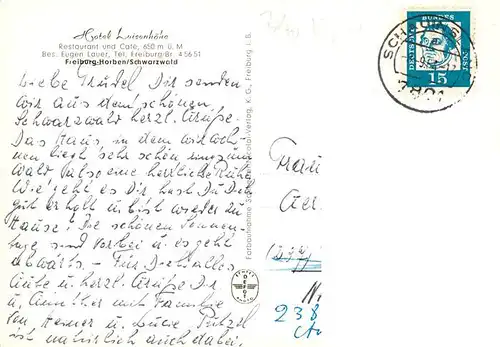 Hotel Luisenhöhe
Restaurant und Café, 650 m ü. M
Bes. Eugen Lauer, Tel. Freiburg/Br. 45651
Freiburg-Horben/Schwarzwald
Liebe Trudel Dir senden
wir aus dem schönen
Schwarzwald herzl. Grüße.
Das Haus, in dem wir woh-
nen liegt sehr schön ringsum
Wald, also eine herrliche Ruhe
Wie geht es Dir, hast Du Dich
gut erholt u. bist wieder zu
Hause? Die schönen Sonnen-
tage sind vorbei u. es geht
abwärts. – Für Dich alles
Gute u. herzl. Grüße Dir
u. Günther mit Familie
von Heiner u. Lucie
ist natürlich auch dabei.
Farbaufnahme Verlag, K. G., Freiburg i. B.
DEUTSCHE
BUNDES
POST
15
SCH
Frau
238